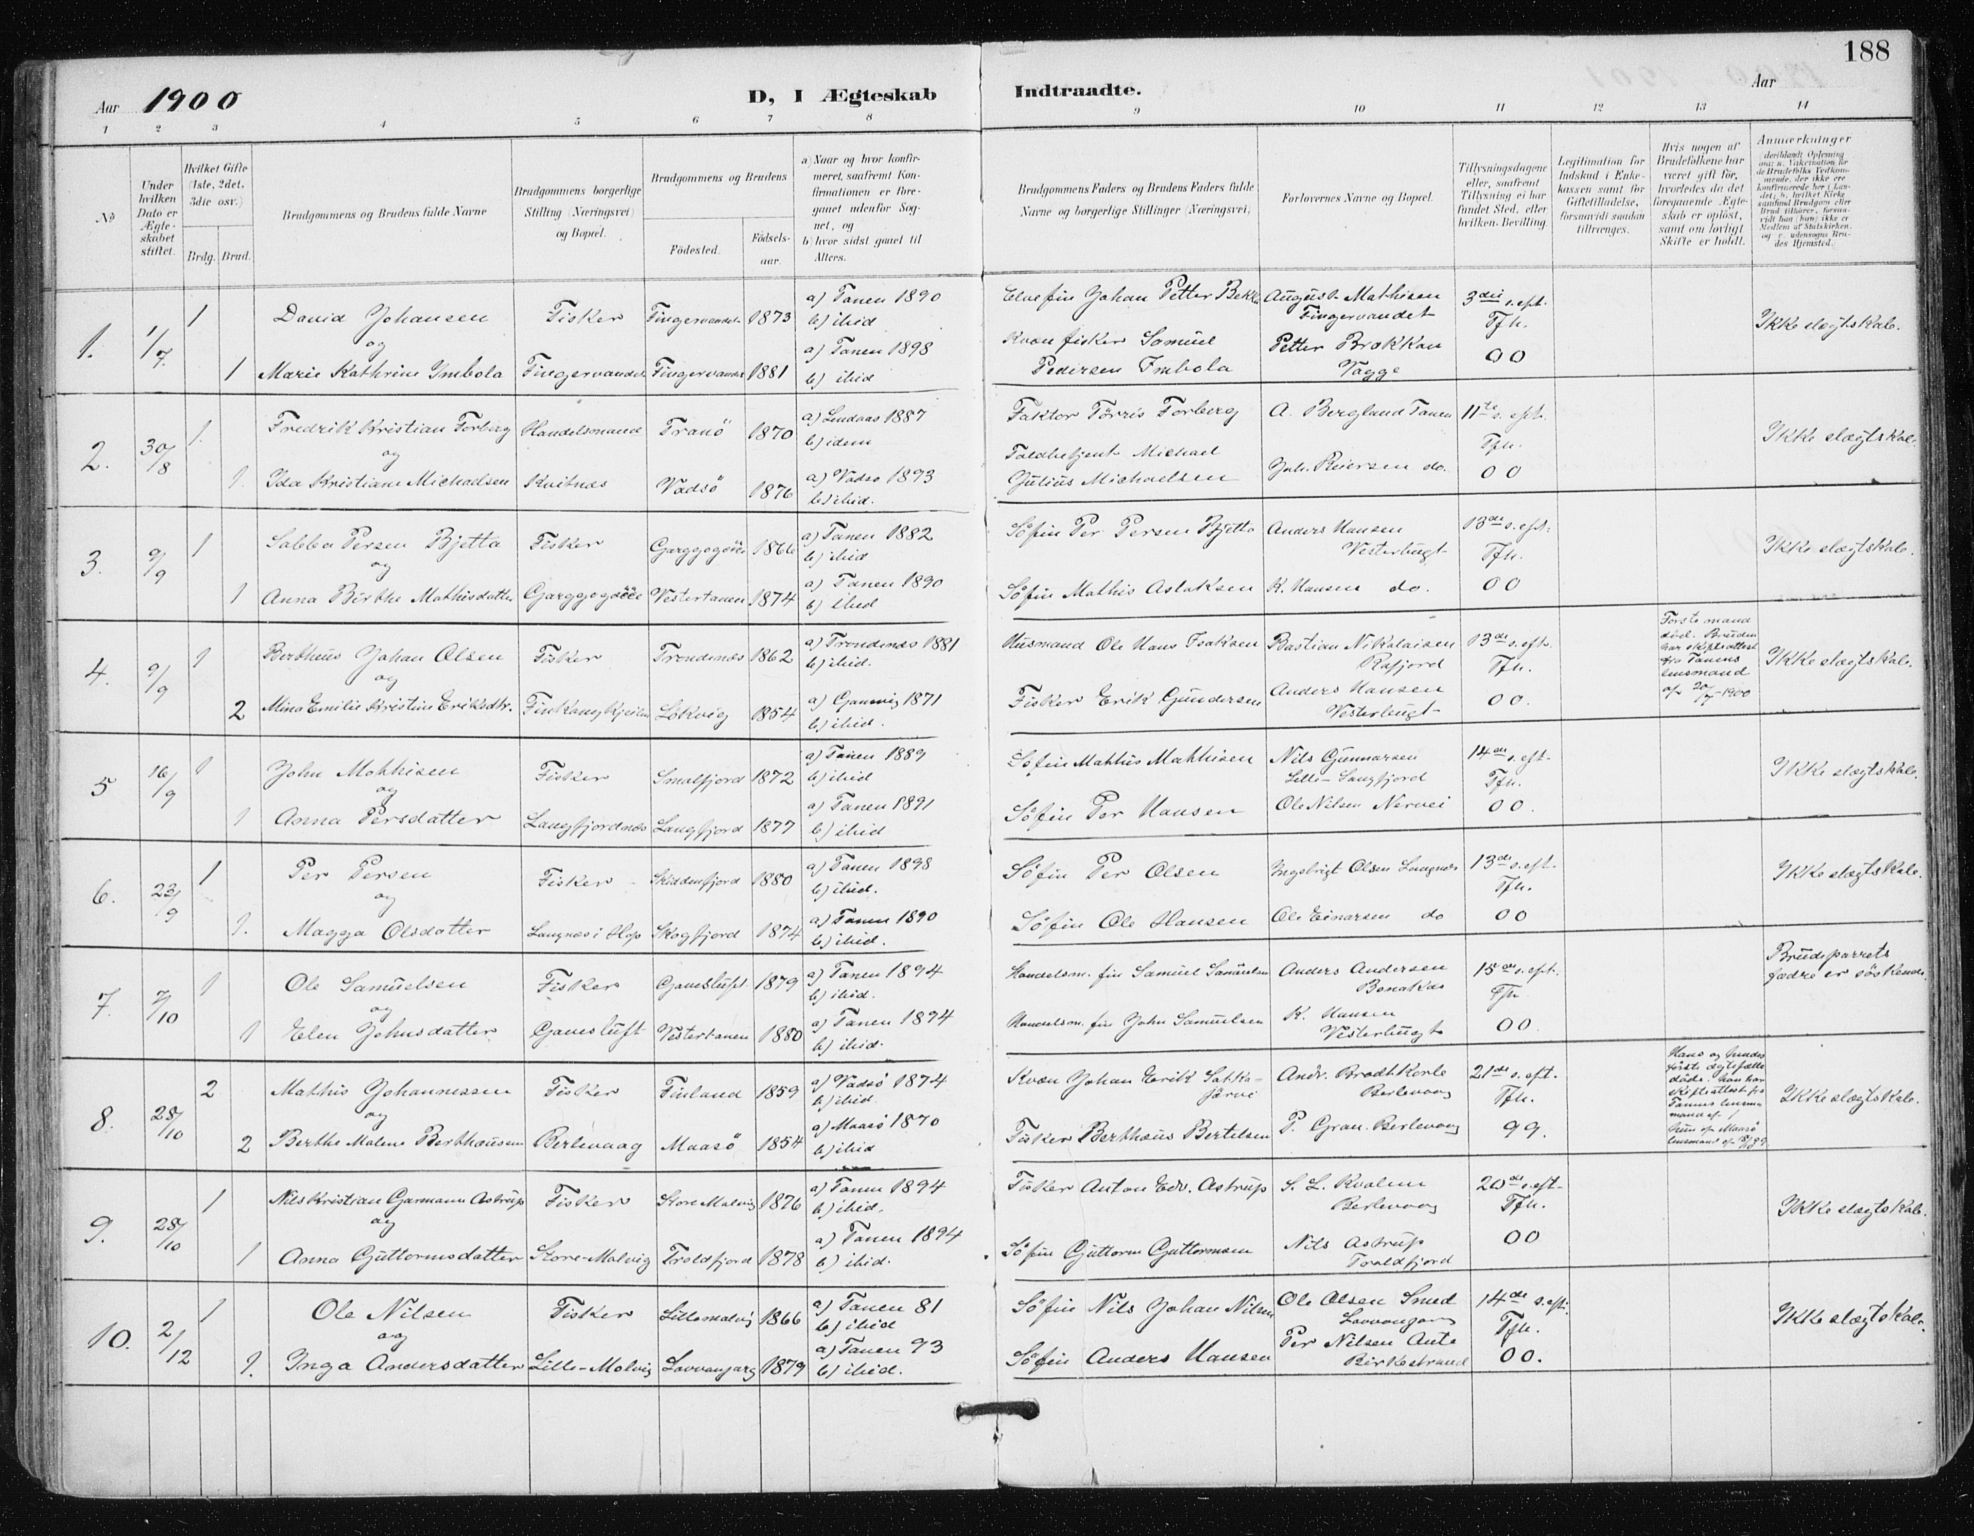 188
Aar 1900
D, I Ægteskab
Indtraadte.
Aar
1 2 3 4 5 6 7 8 9 10 11 12 13 14
No
Under hvilken Dato er Ægteskabet stiftet.
Hvilket Gifte (1ste, 2det, 3die osv.)
Brdg. Brud.
Brudgommens og Brudens fulde Navne
Brudgommens borgerlige Stilling (Næringsvei) og Bopæl.
Brudgommens og Brudens
Fødested.
Fødselsaar.
a) Naar og hvor konfirmeret, saafremt Konfirmationen er foregaaet udenfor Sognet, og
b) hvor sidst gaaet til Alters.
Brudgommens Faders og Brudens Faders fulde Navne og borgerlige Stillinger (Næringsvei)
Forlovernes Navne og Bopæl.
Tillysningsdagene eller, saafremt Tillysning ei har fundet Sted, efter hvilken Bevilling.
Legitimation for Indskud i Enkekassen samt for Giftetilladelse, forsaavidt saadan tiltrænges.
Hvis nogen af Brudefolkene har været gift før, hvorledes da det foregaaende Ægteskab er opløst, samt om lovligt Skifte er holdt.
Anmærkninger
1. 1/7. 1 David Johansen Fisker Fingervandet 1873 a) Tanen 1890 b) ibid
Elvefin Johan Petter August Mathisen Fingervandet 3die s. eft. Tfh. 00 Ikke slægtskab.
og
1 Marie Kathrine Imbola Fingervandet Fingervandet 1881 a) Tanen 1898 b) ibid
Kvæn fisker Samuel Pedersen Imbola Petter Brækkan Vagge
2. 30/8 1. Fredrik Kristian Forberg Handelsmand Tranö 1870 a) Lendaas 1887 b) idem
Faktor Törris Forberg A. Bergland Tanen 11te s. eft. Tfh. 00 Ikke slægtskab.
og
1. Ida Kristiane Michaelsen Kvitnes Vadsö 1876 a) Vadsö 1893 b) ibid.
Toldbetjent Michael Julius Michaelsen Joh. Reiersen do.
3. 9/9 1 Sabba Persen Bjetta Fisker 1866 a) Tanen 1882 b) ibid
Söfin Per Persen Bjetto Anders Hansen Vesterbugt 13de s. eft. Tfh. 00 Ikke slægtskab.
og
1 Anna Birthe Mathisdatter Vestertanen 1874 a) Tanen 1890 b) ibid
Söfin Mathis Aslaksen K. Hansen do.
4. 9/9 1 Bertheus Johan Olsen Fisker Trondenæs 1862 a) Trondenæs 1881 b) ibid.
Husmand Ole Hans Isaksen Bastian Nikolaisen Rafjord 13de s. eft. Tfh. 00. Første mand död. Bruden har skifteattest fra Tanens lensmand af 20/7-1900 Ikke slægtskab.
og
2 Mina Emilie Kristine Eriksdtr. Lökvig 1854 a) Gamvig 1871 b) ibid.
Fisker Erik Gundersen Anders Hansen Vesterbugt
5 16/9 1 John Mathisen Fisker Smalfjord 1872 a) Tanen 1889 b) ibid
Söfin Mathis Mathisen Nils Gunnarsen Lille-Langfjord 14de s. eft. Tfh. 00. Ikke slægtskab.
og
1 Anna Persdatter Langfjordnæs Langfjord 1877 a) Tanen 1891 b) ibid
Söfin Per Hansen Ole Nilsen Nervei
6. 23/9 1 Per Persen Fisker Skiddenfjord 1880 a) Tanen 1898 b) ibid.
Söfin Per Olsen Ingebrigt Olsen Langnæs 13de s. eft. Tfh. 00 Ikke slægtskab.
og
1. Magga Olsdatter Langnæs i Hop Skogfjord 1874 a) Tanen 1890 b) ibid.
Söfin Ole Hansen Ole Einarsen do
7. 7/10 1 Ole Samuelsen Fisker Gavesluft 1879 a) Tanen 1894 b) ibid.
Handelsm. fin Samuel Samuelsen Anders Andersen Bonakas 15de s. eft. Tfh. 00. Brudeparrets fædre er söskende.
og
1 Elen Johnsdatter Gavesluft Vestertanen 1880 a) Tanen 1894 b) ibid.
Handelsm. fin John Samuelsen K. Hansen Vesterbugt
8. 28/10 2 Mathis Johannessen Fisker Finland 1859 a) Vadsö 1874 b) ibid.
Kvæn Johan Erik 21de s. eft. Tfh. 99. Berlevaag Hans og hendes første ægtefælle döde. Ikke slægtskab.
og
2 Berthe Malene Berthausen Berlevaag Maasö 1854 a) Maasö 1870 b) ibid
Fisker Berthæus Bertelsen P. Gran. Berlevaag
9. 28/10 1 Nils Kristian Garmann Astrup Fisker Store Molvig 1876 a) Tanen 1894 b) ibid.
Fisker Anton Edv. Astrup S. L. Kvalnes Berlevaag 20de s. eft. Tfh. 00 Ikke slægtskab.
og
1 Anna Guttormsdatter Store-Molvig Troldfjord 1878 a) Tanen 1894 b) ibid.
Söfin Guttorm Guttormsen Nils Astrup Troldfjord
10. 2/12 1 Ole Nilsen Fisker Lille molvig 1866 a) Tanen 81 b) ibid
Söfin Nils Johan Nilsen Ole Olsen Smed Lavvonjarg 14de s. eft. Tfh. 00. Ikke slægtskab.
og
1. Inga Andersdatter Lille-Molvig Lavvonjarg 1879 a) Tanen 93 b) ibid.
Söfin Anders Hansen Per Nilsen Aute Birkestrand